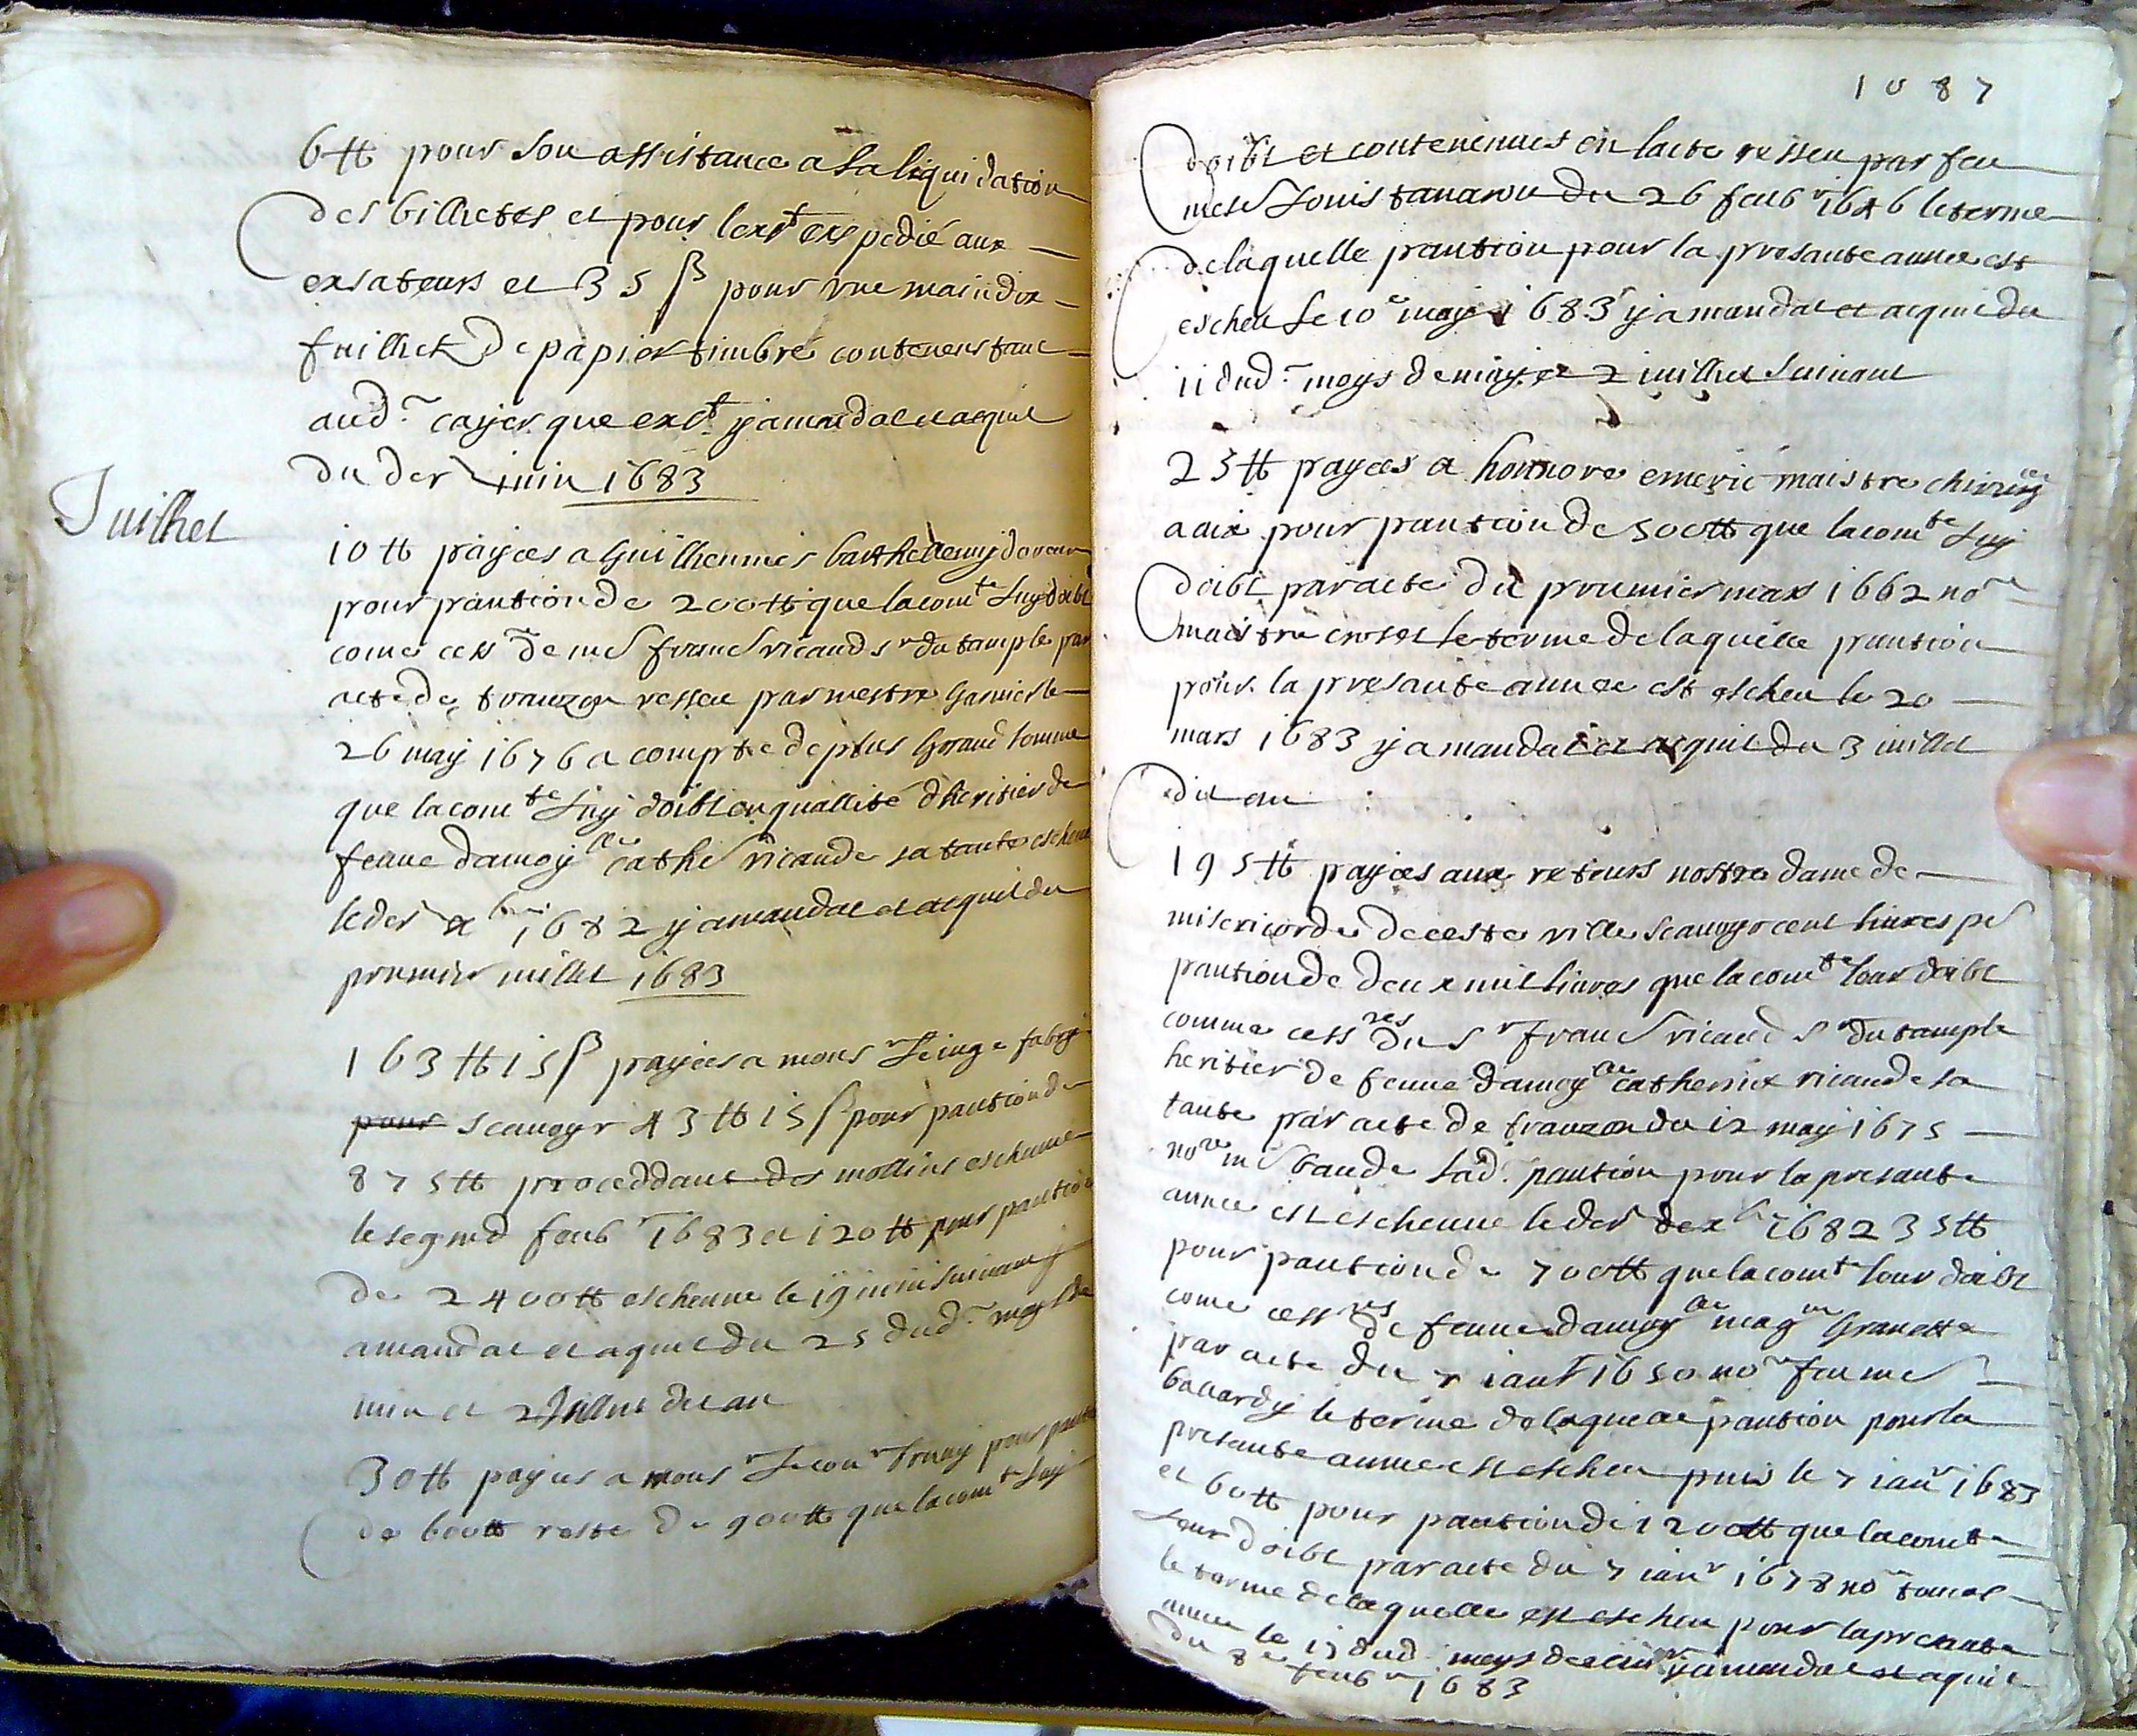 6 ₶ pour son assistance a la liquidation
des billietes et pour lext expedié aux
exsateurs et 35 ß pour vne main dix
fuillietz de papier timbré contenens tant
aud. cayer que ext y a mandat et aquit
du der juin 1683
Juilhet
10 ₶ payees a Guilheumes barthellemy
pour pantion de 200 ₶ que la comte luy doibt
come cess de me franc ricaud sr du temple par
acte de tranzon resseu par mestre garnier le
26 may 1676 a compte de plus grand somme
que la comte luy doibt en quallité dheritier de
feuue damoylle cathe ricaude sa tante escheue
le der xbre 1682 y a mandat et acquit du
premier juillet 1683
163 ₶ 15 ß payees a monsr le iuge fabry
pour scauoyr 43 ₶ 15 ß pour pantion de
875 ₶ proceddant des mollins escheue
le segond feubr 1683 et 120 ₶ pour pantion
de 2400 ₶ escheue le 19 juin suiuant y
a mandat et aquit du 25 dud. moys de
juin et 2 Juillet dit an
30 ₶ payees a monsr le conr bruny pour pantion
de 600 ₶ reste de 900 ₶ que la comte luy
1087
doibt et contenenues en lacte resseu par feu
me Louis tanaron du 26 feubr 1646 le terme
de laquelle pantion pour la presante annee est
escheu le 10e may 1683 y a mandat et acquit du
11 dud. moys de may et 2 juillet suiuant
25 ₶ payees a honnore emeric maistre chirurg
a aix pour pantion de 500 ₶ que la comte luy
doibt par acte du premier mars 1662 nore
maistre le terme de laquelle pantion
pour la presante annee est escheu le 20
mars 1683 y a mandat et acquit du 3 juillet
dit an
195 ₶ payees aux returs nostre dame de
misericorde de ceste ville scauoyr cent liures pr
pantion de deux mil liures que la comte leur doibt
comme cessres du sr franc ricaud sr du temple
heritier de feuue damoylle catherine ricaude sa
tante par acte de tranzon du 12 may 1675
nore me baude lad. pantion pour la presante
annee est escheue le der dexbre 1682 35 ₶
pour pantion de 700 ₶ que la comte leur doibt
come cessres de feuue damoylle magne Granette
par acte du 7 ianr 1650 nore feu me
boucardy le terme de laquelle pantion pour la
presante annee est escheu puis le 7 ianr 1683
et 60 ₶ pour pantion de 1200 ₶ que la comte
leur doibt par acte du 7 ianr 1678 nore
le terme de laquelle est escheu pour la presante
annee le 15 dud. moys de y a mandat et aquit
du 8e feubr 1683